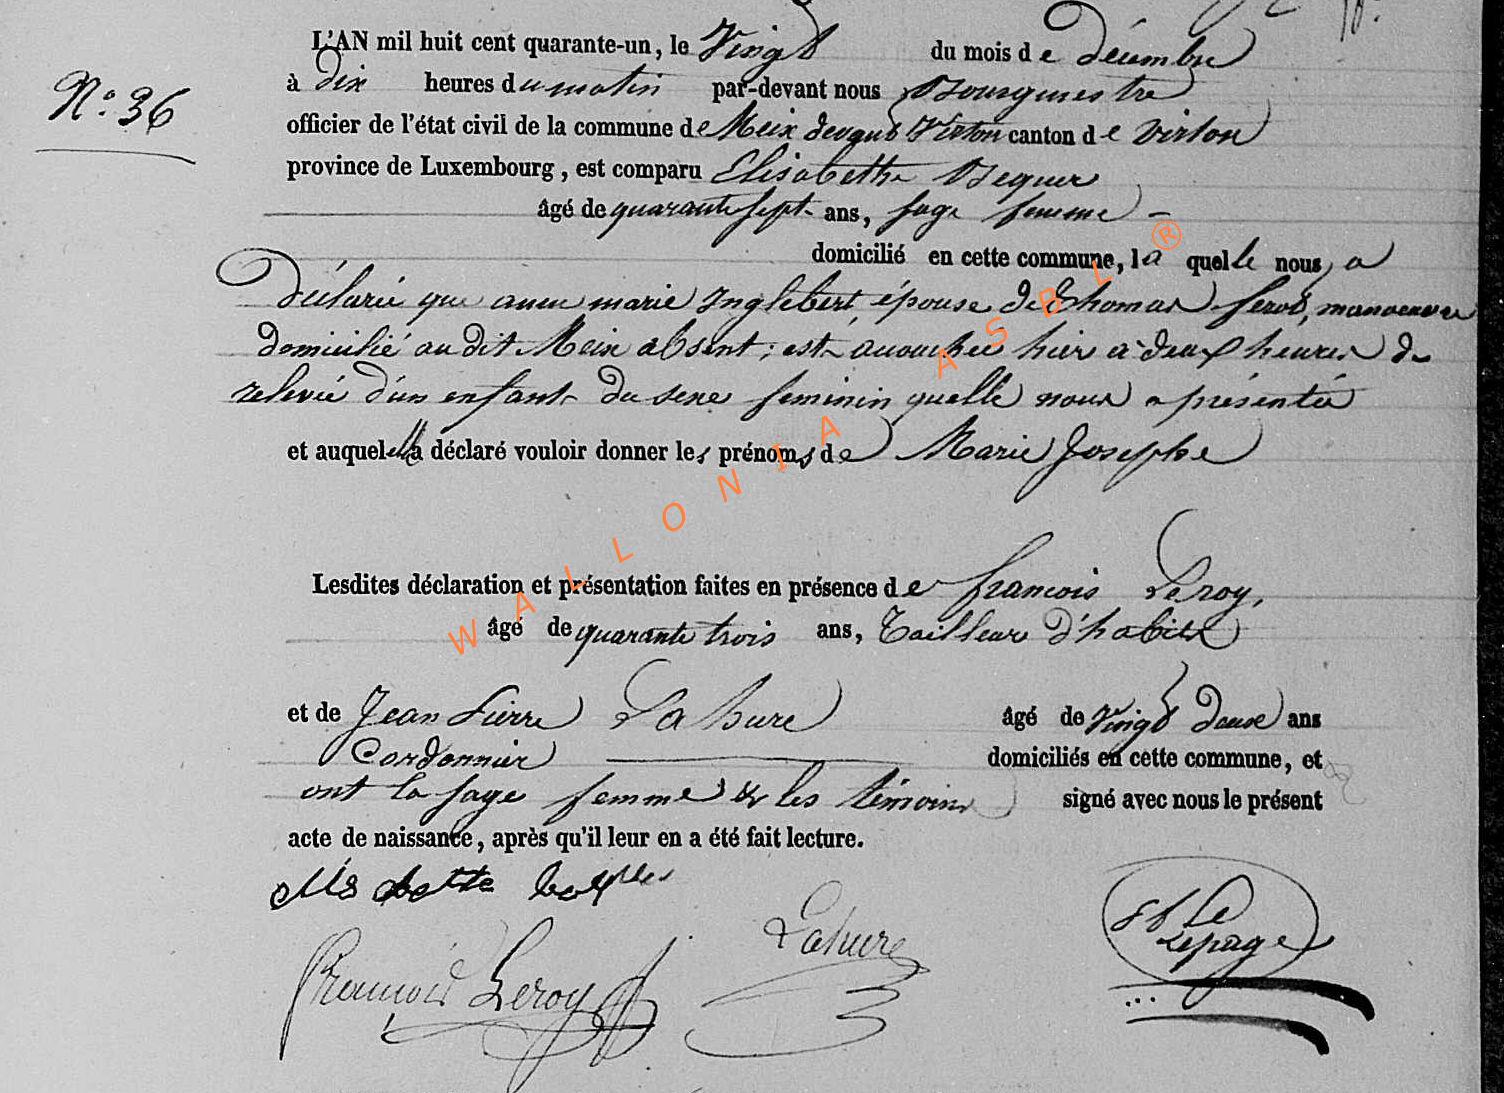 N.º 36
L'AN mil huit cent quarante-un, le Vingt du mois de décembre
à dix heures du matin par-devant nous Bourgmestre
officier de l'état civil de la commune de Meix devant Virton canton de virton
province de Luxembourg, est comparu Elisabethe Bequer
âgé de quarante sept ans, sage femme
domicilié en cette commune, la quelle nous, a
Déclaré que anne marie Inglebert, épouse de Thomas feros, manoeuvre
domicilié au dit Meix absent; est accouchée hier à deux heures de
relevée d'un enfant du sexe feminin quelle nous a présentée
et auquel elle a déclaré vouloir donner les prénoms de Marie Josephe
Lesdites déclaration et présentation faites en présence de francois Leroy,
âgé de quarante trois ans, Tailleur d'habits
et de Jean Pierre Lahure âgé de Vingt deux ans
Cordonnier domiciliés en cette commune, et
ont la sage femme & les témoins signé avec nous le présent
acte de naissance, après qu'il leur en a été fait lecture.
François Leroy
Lahure
Lepage
WALLONIA ASBL ®